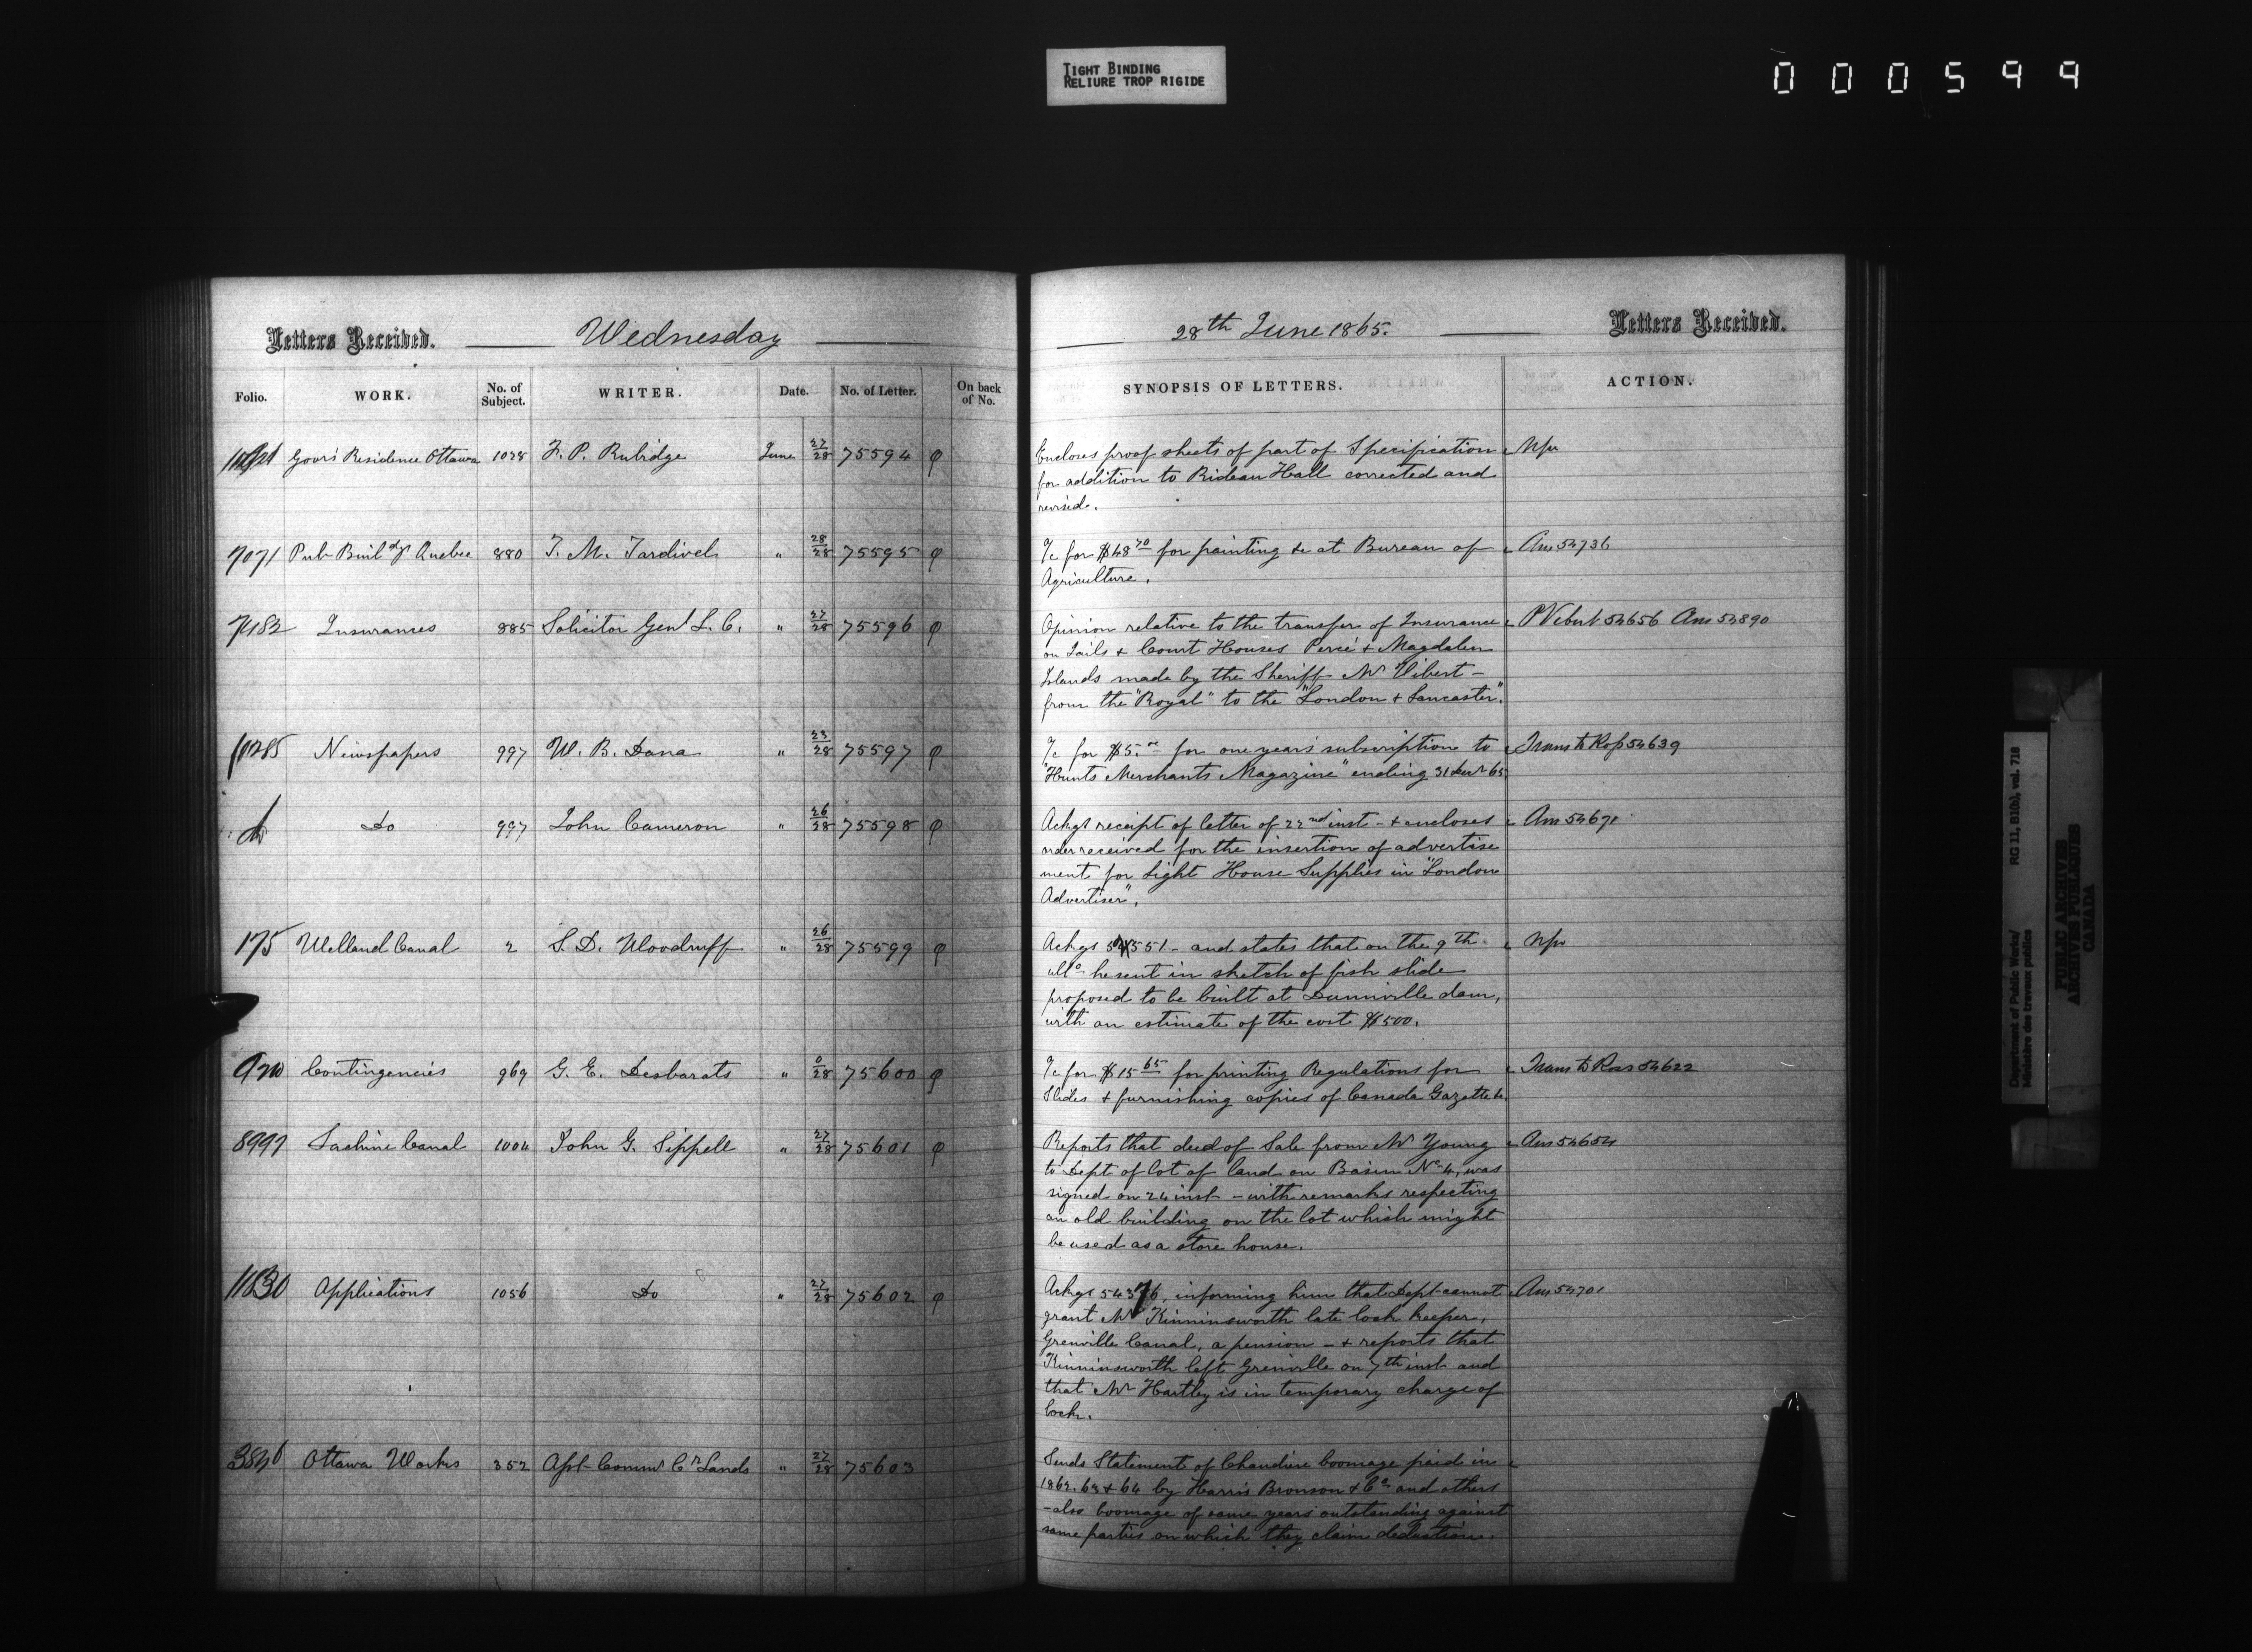 TIGHT BINDING
RELIURE TROP RIGIDE
000599
Letters Received. Wednesday
28th June 1865. Letters Received.
Folio. WORK. No. of Subject. WRITER. Date. No. of Letter. On back of No.
SYNOPSIS OF LETTERS. ACTION.
Govr's Residence Ottawa 1028 F. P. Rubidge June 27/28 75594
Encloses proof sheets of part of Specification
for addition to Rideau Hall corrected and
revised.
7071 Pub Buildgs Quebec 880 T. M. Tardivel " 28/28 75595
A/c for $48 70 for painting &c at Bureau of Ans 54736
Agriculture.
7182 Insurances 885 Solicitor Genl L. C. " 27/28 75596
Opinion relative to the transfer of Insurance P Vibert 54656 Ans 54890
on Jails & Court Houses Percé & Magdalen
Islands made by the Sheriff Mr Vibert -
from the "Royal" to the "London & Lancaster".
Newspapers 997 W. B. Dana " 23/28 75597
A/c for $5.00 for one years subscription to Trans to Ross 54639
"Hunts Merchants Magazine" ending 31 Decr 65
Do 997 John Cameron " 26/28 75598
Ackgs receipt of letter of 22nd inst - & encloses Ans 54671
order received for the insertion of advertise
ment for Light House Supplies in "London
Advertiser".
175 Welland Canal 2 S. D. Woodruff " 26/28 75599
Ackgs 54551 - and states that on the 9th
ulto he sent in sketch of fish slide
proposed to be built at Dunnville dam,
with an estimate of the cost $500.
Contingencies 969 G. E. Desbarats " 0/28 75600
A/c for $15 65 for printing Regulations for Trans to Ross 54622
Slides & furnishing copies of Canada Gazette &c.
8997 Lachine Canal 1004 John G. Sippell " 27/28 75601
Reports that deed of Sale from Mr Young Ans 54654
to Dept of lot of land on Basin No 4, was
signed on 24 inst - with remarks respecting
an old building on the lot which might
be used as a store house.
Applications 1056 Do " 27/28 75602
Ackgs 54376, informing him that Dept cannot Ans 54701
grant Mr Kinninsworth late lock keeper,
Grenville Canal, a pension - & reports that
Kinninsworth left Grenville on 7th inst and
that Mr Hartley is in temporary charge of
lock.
Ottawa Works 352 Asst Commr Cn Lands " 27/28 75603
Sends Statement of Chaudiere boomage paid in
1862. 63 & 64 by Harris Bronson & Co and others
- also boomage of same years outstanding against
same parties on which they claim deduction.
Department of Public Works/ RG 11, B1(b), vol. 718
Ministère des travaux publics
PUBLIC ARCHIVES
ARCHIVES PUBLIQUES
CANADA